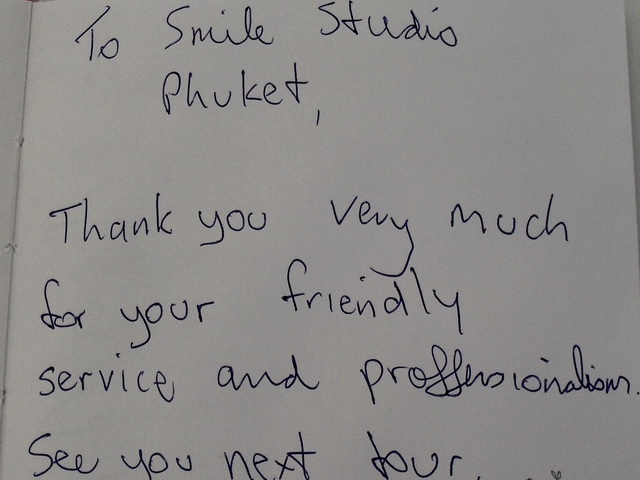 To Smile Studio
Phuket,
Thank you very much
for your friendly
service and proffensionalism.
See you next tour.